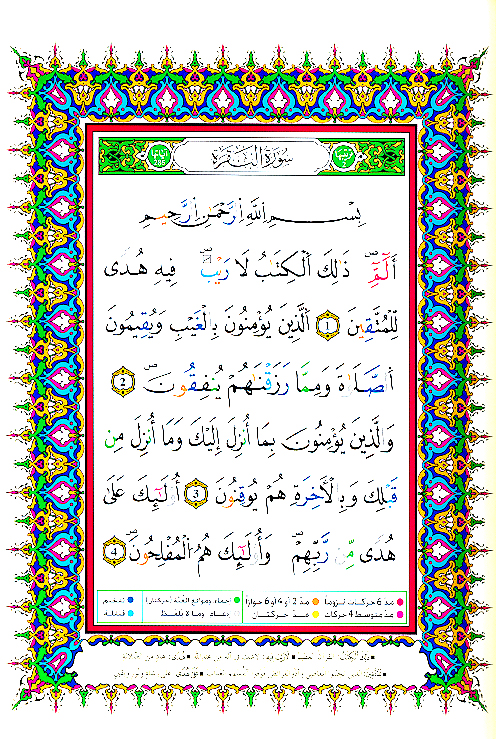 سُورَةُ الْبَقَرَة
286
بِسْمِ اللَّهِ الرَّحْمَٰنِ الرَّحِيمِ
أَلَٓمِّٓ ذَٰلِكَ الْكِتَٰبُ لَا رَيْبَ فِيهِ هُدًى
لِّلْمُتَّقِينَ 1 الَّذِينَ يُؤْمِنُونَ بِالْغَيْبِ وَيُقِيمُونَ
الصَّلَوٰةَ وَمِمَّا رَزَقْنَٰهُمْ يُنفِقُونَ 2
وَالَّذِينَ يُؤْمِنُونَ بِمَا أُنزِلَ إِلَيْكَ وَمَا أُنزِلَ مِن
قَبْلِكَ وَبِالْآخِرَةِ هُمْ يُوقِنُونَ 3 أُوْلَٰٓئِكَ عَلَىٰ
هُدًى مِّن رَّبِّهِمْ وَأُوْلَٰٓئِكَ هُمُ الْمُفْلِحُونَ 4
مدّ 6 حركات لزوماً مدّ 2 أو 4 أو 6 جوازاً إخفاء ومواقع الغنّة (حركتان) تفخيم
مدّ متوسط 4 حركات مدّ حركتان إدغام، وما لا يُلفظ قلقلة